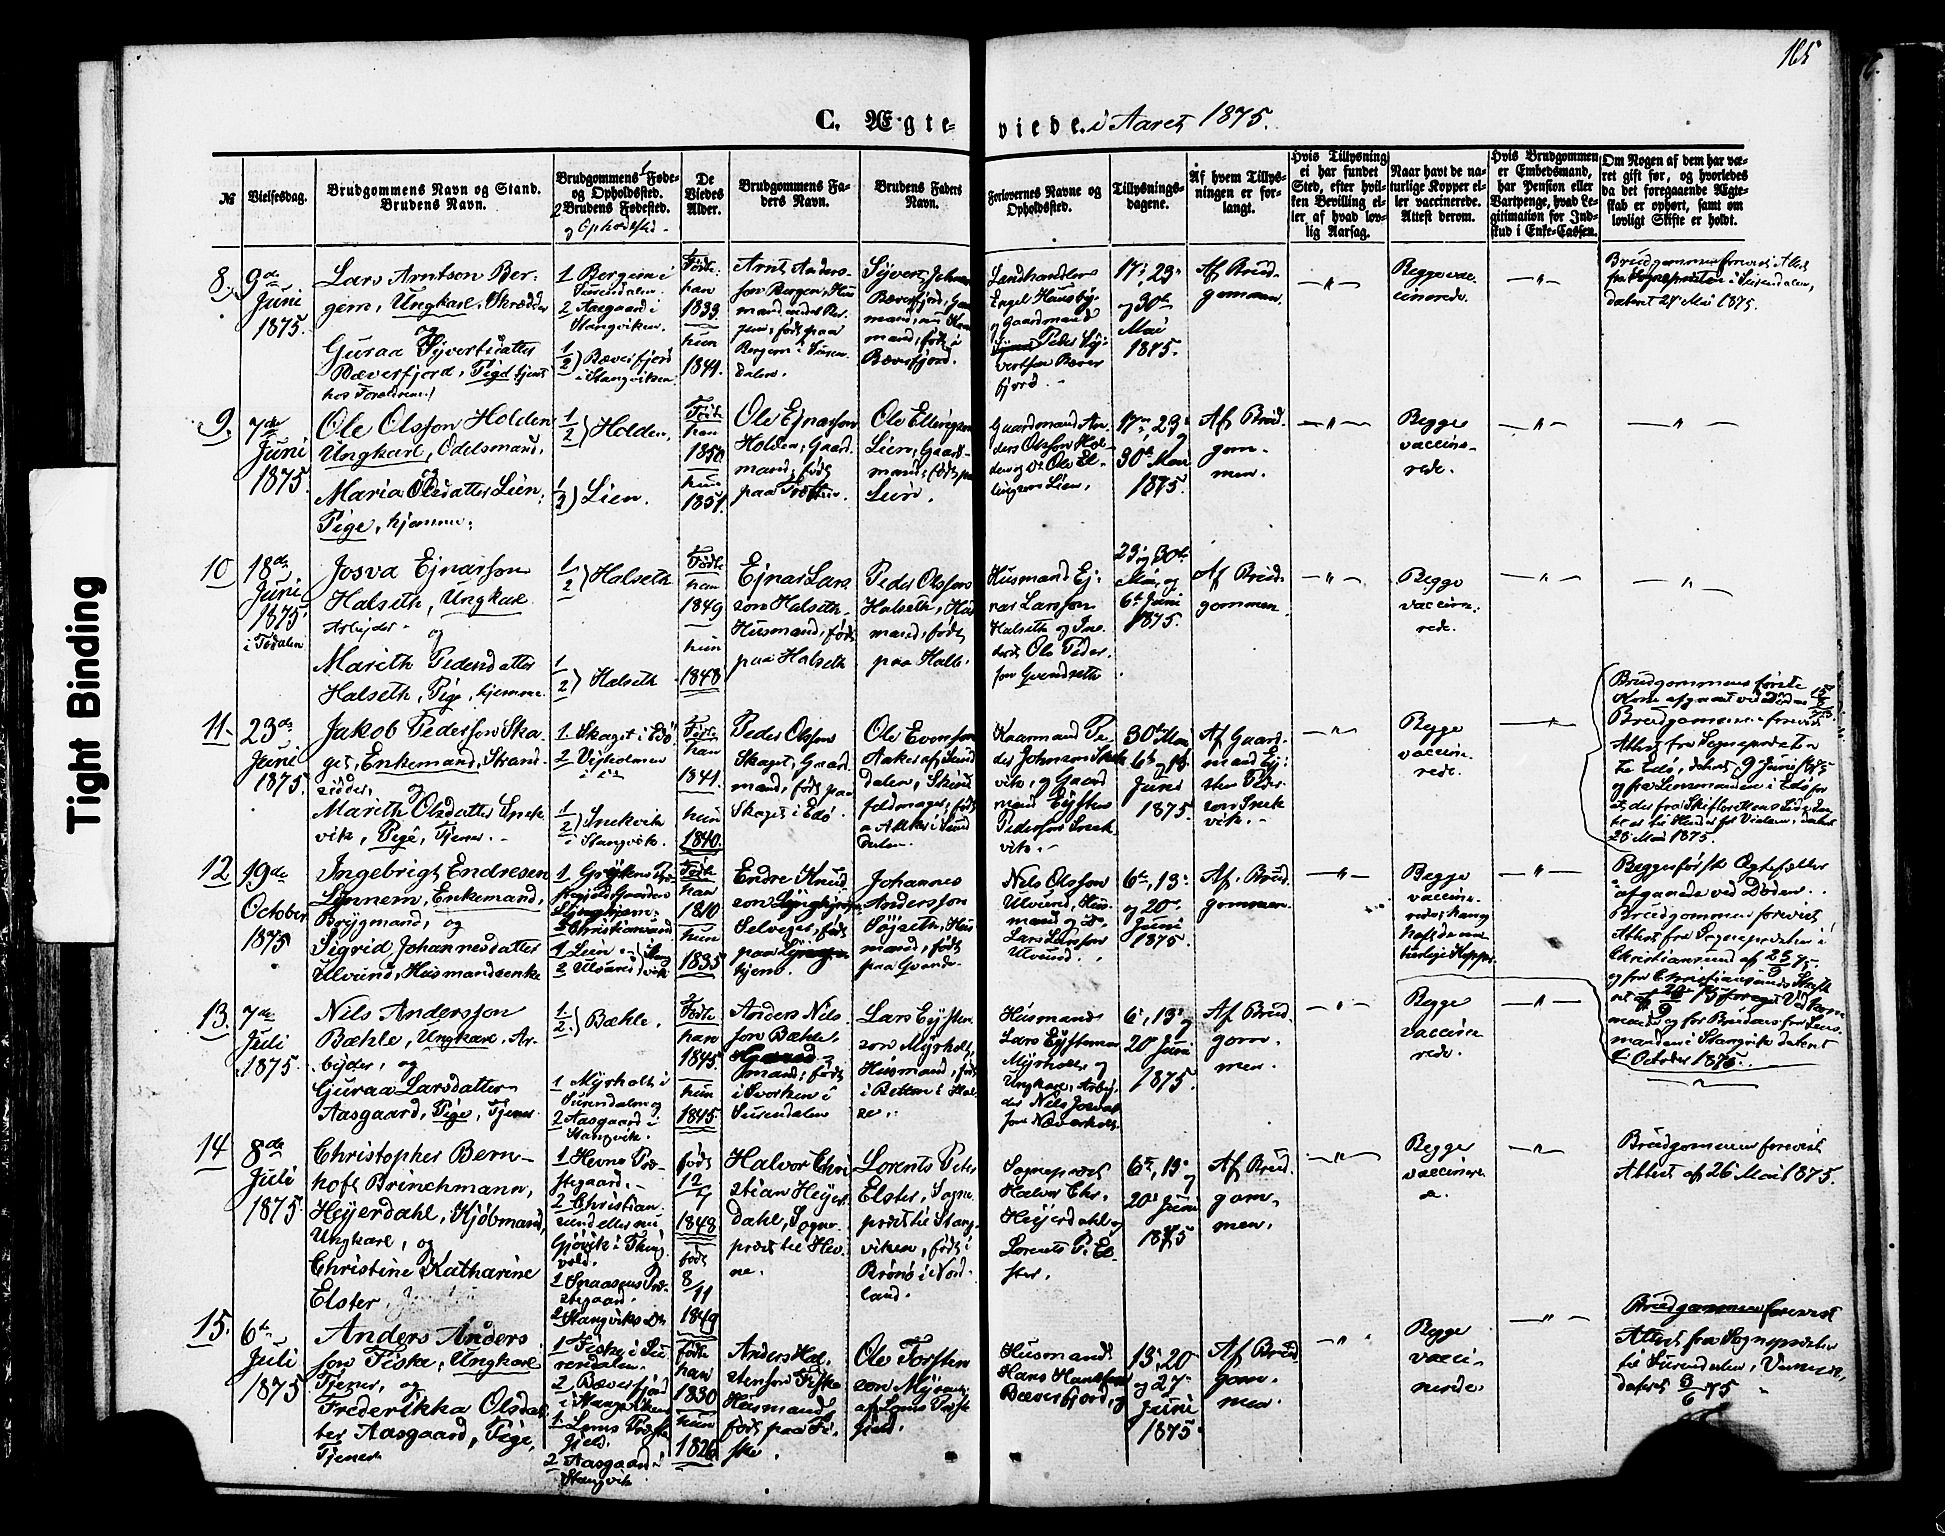 165
C. Ægteviede. i Aaret 1875.
Tight Binding
№
Vielsesdag.
Brudgommens Navn og Stand.
Brudens Navn.
Brudgommens Føde-
og Opholdssted.
Brudens Fødested.
og Opholdssted.
De
Viedes
Alder.
Brudgommens Fa-
ders Navn.
Brudens Faders
Navn.
Forlovernes Navne og
Opholdssted.
Tillysnings-
dagene.
Af hvem Tillys-
ningen er for-
langt.
Hvis Tillysning
ei har fundet
Sted, efter hvil-
ken Bevilling el-
ler af hvad lov-
lig Aarsag.
Naar havt de na-
turlige Kopper el-
ler vaccinerede.
Attest derom.
Hvis Brudgommen
er Embedsmand,
har Pension eller
Vartpenge, hvad Le-
gitimation for Ind-
skud i Enke-Cassen.
Om Nogen af dem har væ-
ret gift før, og hvorledes
da det foregaaende Ægte-
skab er ophørt, samt om
lovligt Skifte er holdt.
8.
9de
Juni
1875.
Lars Arntson Ber-
gem, Ungkarl, Skrædder
og
Guraa Syvertsdatter
Bæverfjord, Pige tjent
hos Forældrene.
1 Bergem i
Surendalen.
2 Aasgaard i
Stangviken.
1
2) Bæverfjord
i Stangviken.
Født
han
1839
hun
1841.
Arnt Anders-
son Bergem, Hus
mand under Ber-
gem, født paa
Bergem i Suren-
dalen.
Bæverfjord.
Landhandler
Engel Hansby
og Gaardmand
Peder Sy-
vertsen Bæver
fjord.
17, 23
og 30te
Mai
1875.
Af Brud-
gommen.
— " —
Begge vac-
cinerede.
— " —
Brudgommen foreviist Attest
fra Sognepræsten i Surendalen,
dateret 27 Mai 1875.
9.
7de
Juni
1875.
Ole Olsson Holden
Ungkarl, Odelsmand,
og
Maria Olsdatter Lien,
Pige, hjemme.
1
2) Holden.
1
2) Lien.
Født
han
1850
hun
1851.
Ole Ejnarson
Holden, Gaard-
mand, født
paa
Ole Ellingsen
Lien, Gaard-
mand, født paa
Lien.
Gaardmand An-
ders Olsson Hol-
den og Do Ole El-
lingsen Lien.
17de, 23
30te Mai
1875.
Af Brud-
gom-
men.
— " —
Begge
vaccine-
rede.
— " —
— " —
10
18de
Juni
1875.
i Todalen
Josva Ejnarson
Halseth, Ungkarl
Arbejder
og
Marith Pedersdatter
Halseth, Pige, hjemme
1
2) Halseth
1
2) Halseth
Født
han
1849
hun
1848
Ejnar Lars
son Halseth,
Husmand, født
paa Halseth
Peder Olsson
Halseth, Hus
mand, født
paa Halle.
Husmand Ej-
nar Larsson
Halseth og In-
derst Ole Peder-
son Qvendseth
23 og 30te
Mai, og
6te Juni
1875.
Af Brud-
gommen.
— " —
Begge
vaccine-
rede.
— " —
— " —
11.
23de
Juni
1875.
Jakob Pederson Ska-
get, Enkemand, Strand-
sidder, og
Mareth Olsdatter Snek
vik, Pige, Tjener.
1 Skaget i Edø
2
1
2) Snekvik
i Stangvik.
Født
han
1841.
hun
1840.
Peder Olsson
Skaget, Gaard
mand, født paa
Skaget i Edø.
Ole Evensson
Aaker af Sund
dalen, Skind
feldmager, født
paa Aaker i Sund
dalen.
Kaarmand Pe-
der Johnsen Snek
vik, og Gaard
mand Eysten
Pederson Snek
vik.
30te Mai
6te og 13
Juni
1875.
Af Gaard-
mand Ey-
sten Peder
son Snek
vik.
— " —
Begge
vaccine-
rede.
— " —
Brudgommens første
Kone afgaaet ved Døden
Brudgommen foreviist
Attest fra Sognepræsten
til Edø, dateret 9 Juni 1875
og fra Lensmanden i Edø for
at der fra Skifterettens Side In-
tet er til Hinder for Vielsen, dateret
28 Mai 1875.
12
19de
October
1875
Ingebrigt Endresen
Lynnem, Enkemand,
Brygmand, og
Sigrid Johannesdatter
Ulvund, Husmandsenke
2 Christiansund
1 Lien
2 Ulvund
Født
han
1810
hun
1835
Endre Knud
son
Selveier, født
paa
Johannes
Andersson
Søjseth, Hus
mand, født
paa Qvande.
Nils Olsson
Ulvund, Hus-
mand og Do
Lars Larsson
Ulvund.
6te, 13
og 20
Juni
1875.
Af Brud-
gommen.
— " —
Begge
vaccine-
rede; han
havt de na-
turlige Kopper.
— " —
Begges første Ægtefæller
afgaaede ved Døden.
Brudgommen foreviist
Attest fra Sognepræsten i
Christiansund af
og fra Christiansunds Skifte
ret af
mand og for Bruden fra Lens-
manden i Stangvik dateret
October 1875.
13.
7de
Juli
1875.
Nils Andersson
Bæhle, Ungkarl, Ar-
bejder, og
Guraa Larsdatter
Aasgaard, Pige, Tjener
1
2) Bæhle.
1 Myrholt i
Surendalen og
2 Aasgaard i
Stangvik.
Født
han
1845.
hun
1845.
Anders Nils
son Bæhle,
mand, født
i Svorken i
Surendalen
Lars Eysten
son Myrholt,
Husmand, født
i Betten i Hal-
se.
Husmand
Lars Eystenson
Myrholt, og
Ungkarl, Arbej-
der Nils Josvas
son Næverholt.
6, 13 og
20 Juni
1875.
Af Brud-
gom-
men.
— " —
Begge
vaccine-
rede.
— " —
14
8de
Juli
1875.
Christopher Bern-
hoft Brinchmann,
Heyerdahl, Kjøbmand,
Ungkarl, og
Christine Katharine
Elster.
1 Hevne Præ-
stegaard.
2 Christian-
sund eller nu
Gjøvik i Thing
vold.
1 Snaasens Præ-
stegaard.
2 Stangviks Do
født
12/7
1848
født
8/11
1849
Halvor Chri
stian Heyer
dahl, Sogne-
præst til Hev-
ne.
Lorents Peter
Elster, Sogne-
præst til Stang-
viken, født i
Brønø i Nord-
land.
Sognepræst
Halvor Chr.
Heyerdahl og
Lorents P. El-
ster.
6te, 13 og
20 Juni
1875
Af Brud-
gom-
men.
— " —
Begge
vaccinere-
de.
— " —
Brudgommen foreviist
Attest af 26 Mai 1875.
15.
6te
Juli
1875
Anders Anders
son Fiske, Ungkarl
Tjener, og
Frederikka Olsdat
ter Aasgaard, Pige,
Tjener
1 Fiske i Su-
rendalen.
2 Bæverfjord
i Stangviken
2 Aasgaard i
Stangvik
født
han
1830
hun
1826
Anders Hal-
stenson Fiske
Husmand
født paa Fi-
ske.
Ole Torsten
son
Husmand
Hans Hansson
Bæverfjord, og
13, 20
og 27
Juni
1875.
Af Brud
gom-
men.
— " —
Begge
vacci-
nerede.
— " —
Brudgommen foreviist
Attest fra Sognepræsten
til Surendalen,
dateret 3/6 75